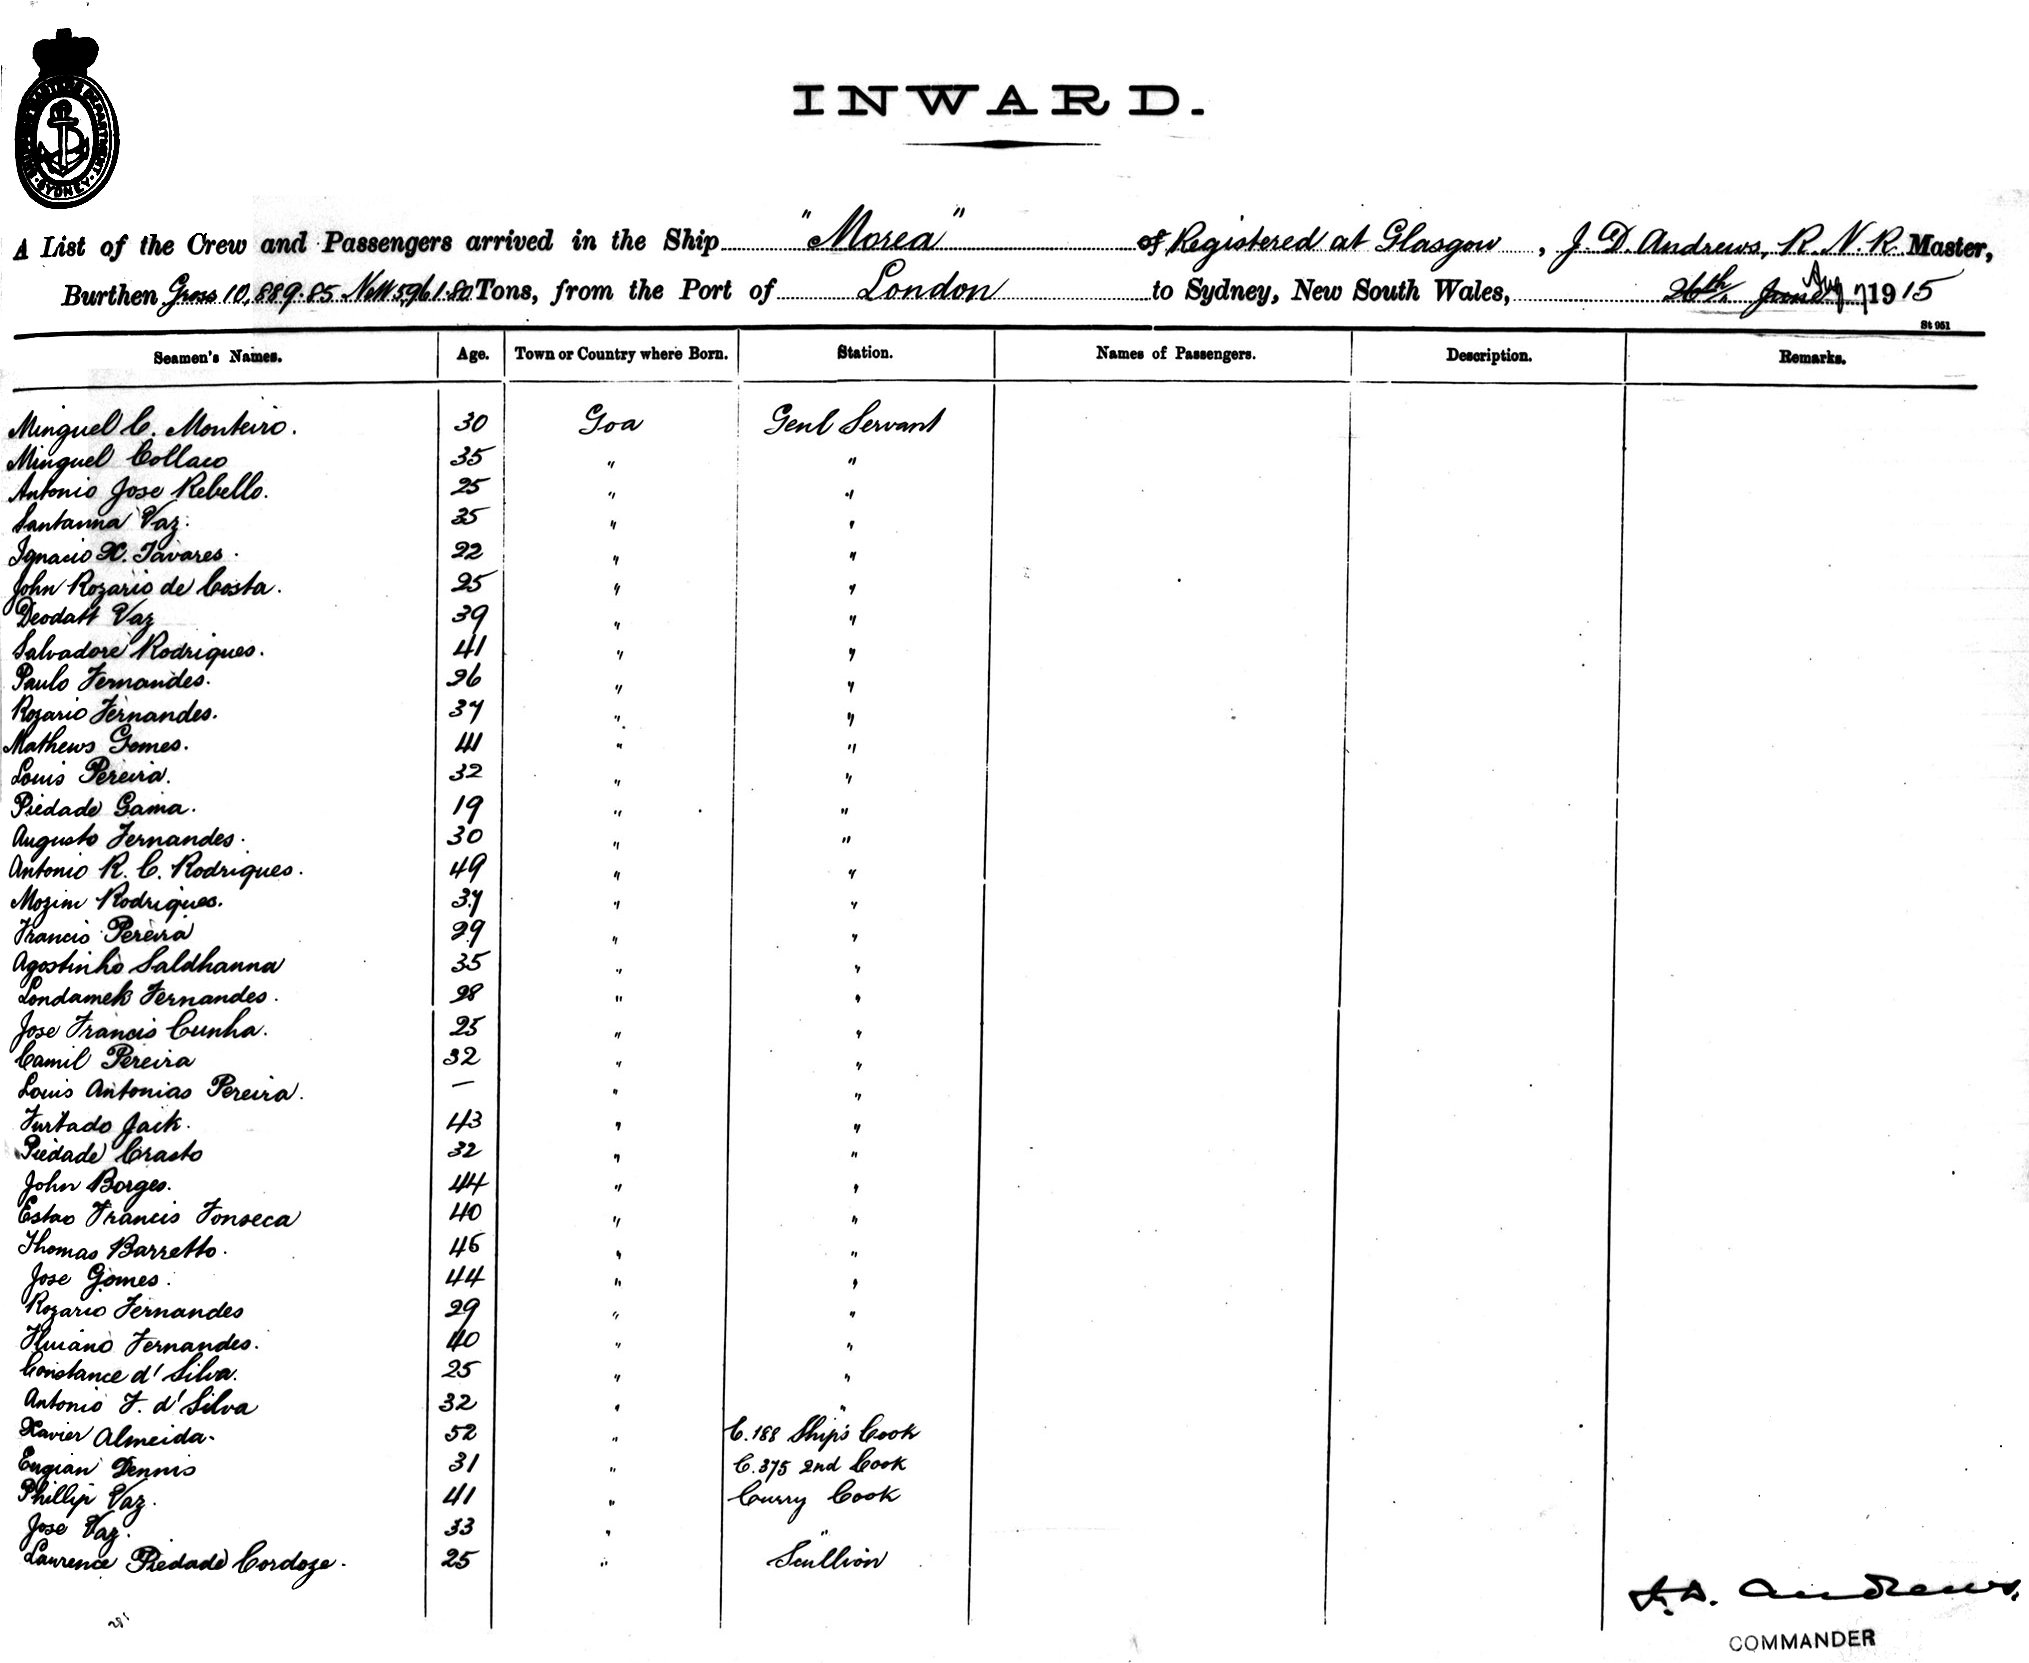 MARITIME DEPARTMENT. SYDNEY
INWARD.
A List of the Crew and Passengers arrived in the Ship "Morea" of Registered at Glasgow, J. D. Andrews, R. N. R. Master,
Burthen Gross 10,889.85 Nett 5961.80 Tons, from the Port of London to Sydney, New South Wales, 26th June Aug 7 1915
St 951
Seamen's Names. Age. Town or Country where Born. Station. Names of Passengers. Description. Remarks.
Minguel C. Monteiro. 30 Goa Genl Servant
Minguel Collaco 35 " "
Antonio Jose Rebello. 25 " "
Santanna Vaz. 35 " "
Ignacio X. Tavares. 22 " "
John Rozario de Costa. 25 " "
Deodatt Vaz 39 " "
Salvadore Rodrigues. 41 " "
Paulo Fernandes. 26 " "
Rozario Fernandes. 37 " "
Mathews Gomes. 41 " "
Louis Pereira. 32 " "
Piedade Gama. 19 " "
Augusto Fernandes. 30 " "
Antonio R. C. Rodrigues. 49 " "
Mozim Rodrigues. 37 " "
Francis Pereira 29 " "
Agostinho Saldhanna 35 " "
Londamek Fernandes. 28 " "
Jose Francis Cunha. 25 " "
Camil Pereira 32 " "
Louis Antonias Pereira. — " "
Furtado Jack. 43 " "
Piedade Crasto 32 " "
John Borges. 44 " "
Estao Francis Fonseca 40 " "
Thomas Barretto. 46 " "
Jose Gomes. 44 " "
Rozario Fernandes 29 " "
Fernandes. 40 " "
Constance d'Silva. 25 " "
Antonio F. d'Silva 32 " "
Xavier Almeida. 52 " C.188 Ship's Cook
Engian Dennis 31 " C.375 2nd Cook
Phillip Vaz. 41 " Curry Cook
Jose Vaz. 33 " "
Laurence Piedade Cordoze. 25 " Scullion
J. D. Andrews.
COMMANDER